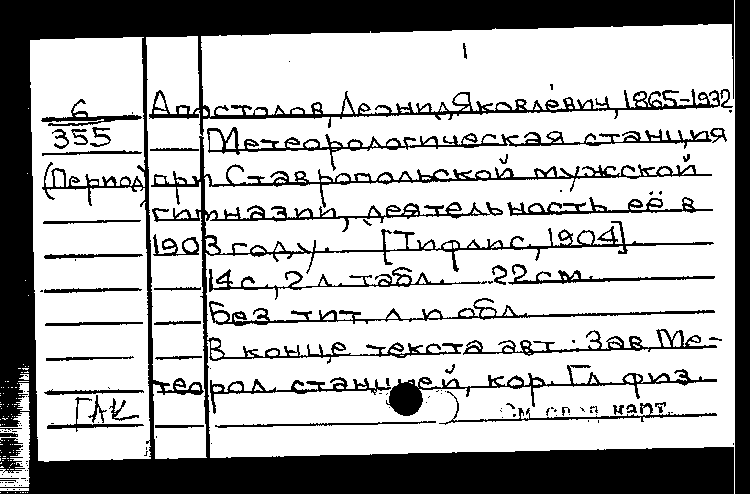 1
6
Апостолов, Леонид Яковлевич, 1865-1932
355
Метеорологическая станция
(Период) при Ставропольской мужской
гимназии, деятельность её в
1903 году. [Тифлис, 1904].
14 с., 2 л. табл. 22 см.
Без тит. л. и обл.
В конце текста авт.: Зав. Ме-
теорол. станцией, кор. Гл. физ.
ГАК
См. след. карт.